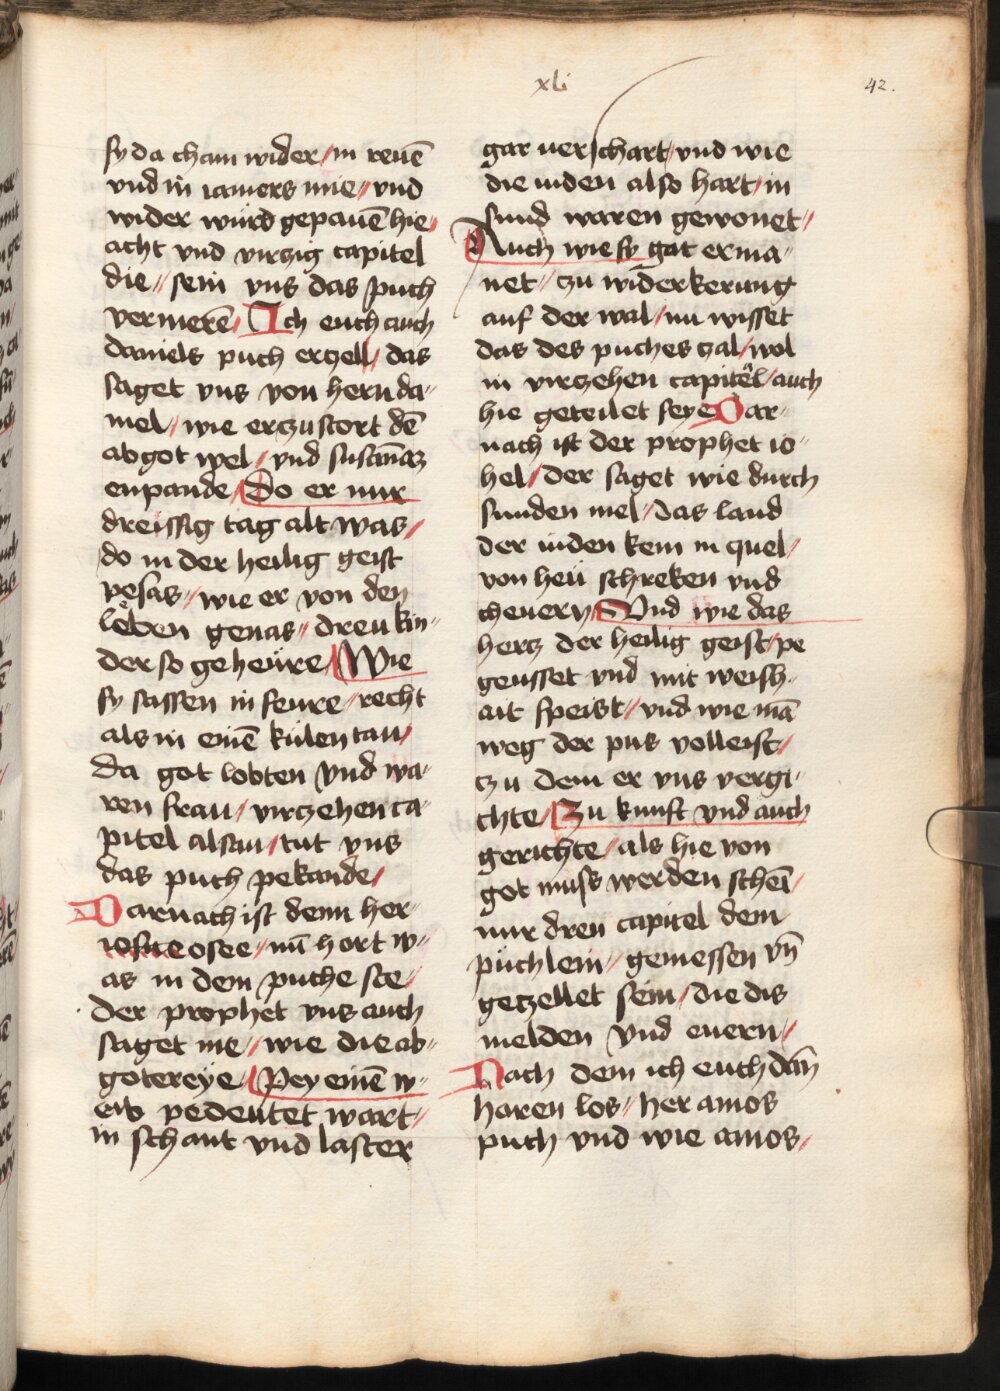 xli
42.
sy da cham wider / in reuē
vnd in iamers mie // vnd
wider würd gepauē hie /
acht vnd virczig capitel
die // sein vns das puch
vermerē / Ich euch auch
daniels puch erczell / das
saget vns von hern da-
niel / wie er czustort dē
abgot wel / vnd susannācz
enpande / Do er nur
dreissig tag alt was /
do in der heilig geist
pesas // wie er von den
leben genas // dreu kin-
der so geheüre / Wie
sy sassen in feure / recht
als in einē külen tau /
da got lobten vnd wa-
ren frau / virczehen ca-
pitel alsau / tut vns
das puch pekande /
Darnach ist denn her-
iosue osee / nū hort w-
as in dem puche ste /
der prophet vns auch
saget me // wie die ab-
gotereye / Pey einē w-
eib pedeutet wart /
in schant vnd laster
gar verschart / vnd wie
die iuden also hart / in
sund waren gewonet /
Auch wie sy got erma-
net // czu widerkerung
auf der wal / nu wisset
das des puches czal / wol
in virczehen capitel / auch
hie geteilet seye Dar-
nach ist der prophet io-
hel / der saget wie durch
sunden mel / das land
der iuden kem in quel /
von heü schreken vnd
cheuern / Vnd wie das
hercz der heilig geist / pe
geusset vnd mit weish-
ait speist // vnd wie mā
weg der pus volleist /
czu dem er vns vergi-
chte / Zu kunft vnd auch
gerichte / als hie von
got mus werden schei /
nur dreu capitel dem
püchlein / gemessen vn̄
geczellet sein / die dis
melden vnd euern /
Nach dem ich euch dān
haren los // her amos
puch vnd wie amos /